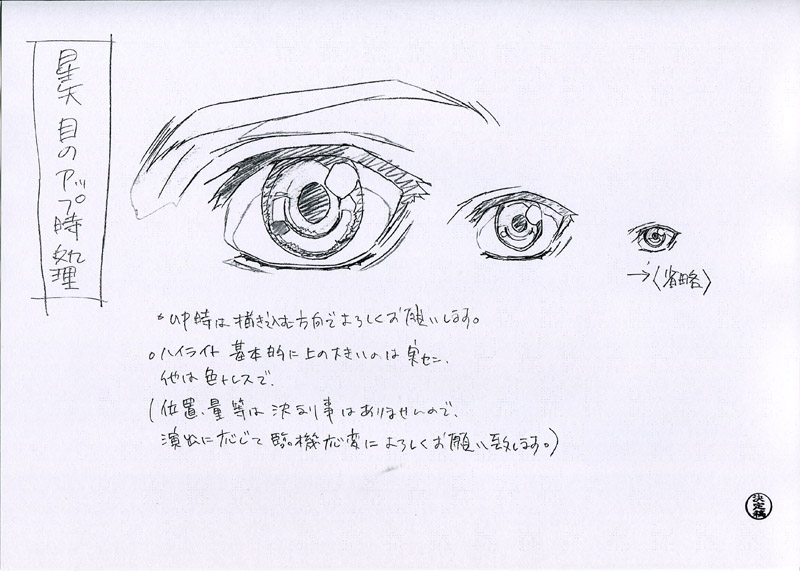 星矢 目のアップ時処理
→〈省略〉
○UP時は描き込む方向でよろしくお願いします。
○ハイライト 基本的に上の大きいのは実セン、
他は色トレスで、
(位置、量等は決まり事はありませんので、
演出に応じて臨機応変によろしくお願い致します。)
決定稿